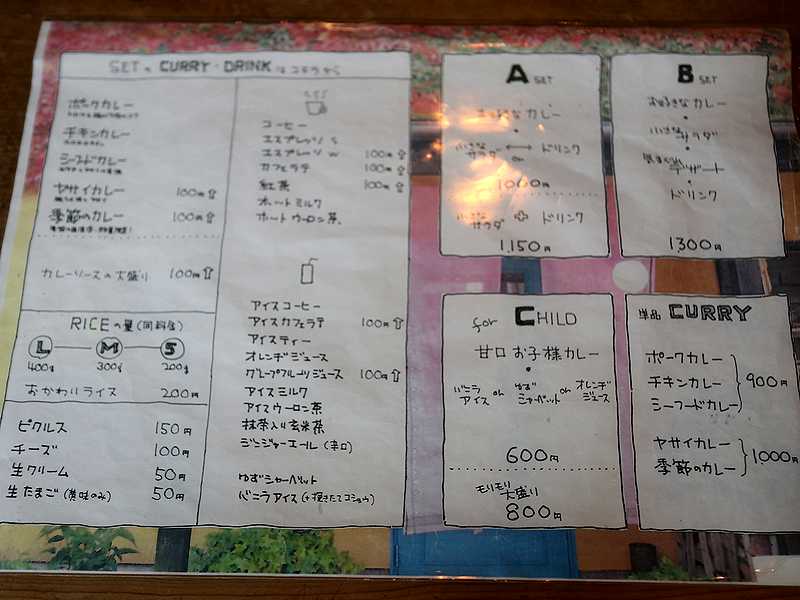 SETの CURRY・DRINK はコチラから
ポークカレー
チキンカレー
シーフードカレー
ヤサイカレー 100円⇧
季節のカレー 100円⇧
カレーソースの大盛り 100円⇧
RICEの量(同料金)
L M S
400g 300g 200g
おかわりライス 200円
ピクルス 150円
チーズ 100円
生クリーム 50円
生たまご(黄味のみ) 50円
コーヒー
エスプレッソ S
エスプレッソ W 100円⇧
カフェラテ 100円⇧
紅茶 100円⇧
ホットミルク
ホットウーロン茶
アイスコーヒー
アイスカフェラテ 100円⇧
アイスティー
オレンヂジュース
グレープフルーツジュース 100円⇧
アイスミルク
アイスウーロン茶
抹茶入り玄米茶
ジンジャーエール(辛口)
ゆずシャーベット
バニラアイス(+挽きたてコショウ)
A SET
お好きなカレー
・
小さなサラダ ⟷ or ドリンク
1,060円
小さなサラダ + ドリンク
1,150円
B SET
お好きなカレー
・
小さなサラダ
・
気まぐれデザート
・
ドリンク
1,300円
for CHILD
甘口お子様カレー
・
バニラアイス or ゆずシャーベット or オレンヂジュース
600円
モリモリ大盛り
800円
単品 CURRY
ポークカレー
チキンカレー 900円
シーフードカレー
ヤサイカレー
季節のカレー 1,000円